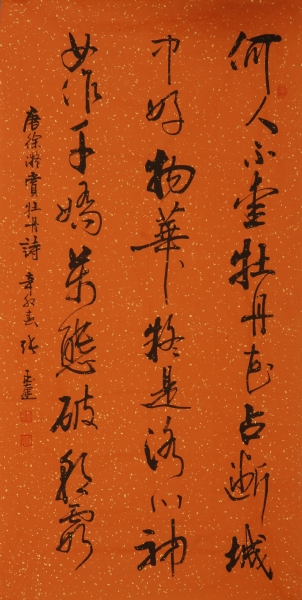 何人不愛牡丹花占斷城
中好物華疑是洛川神
女作千嬌萬態破朝霞
唐徐凝賞牡丹詩辛卯春張